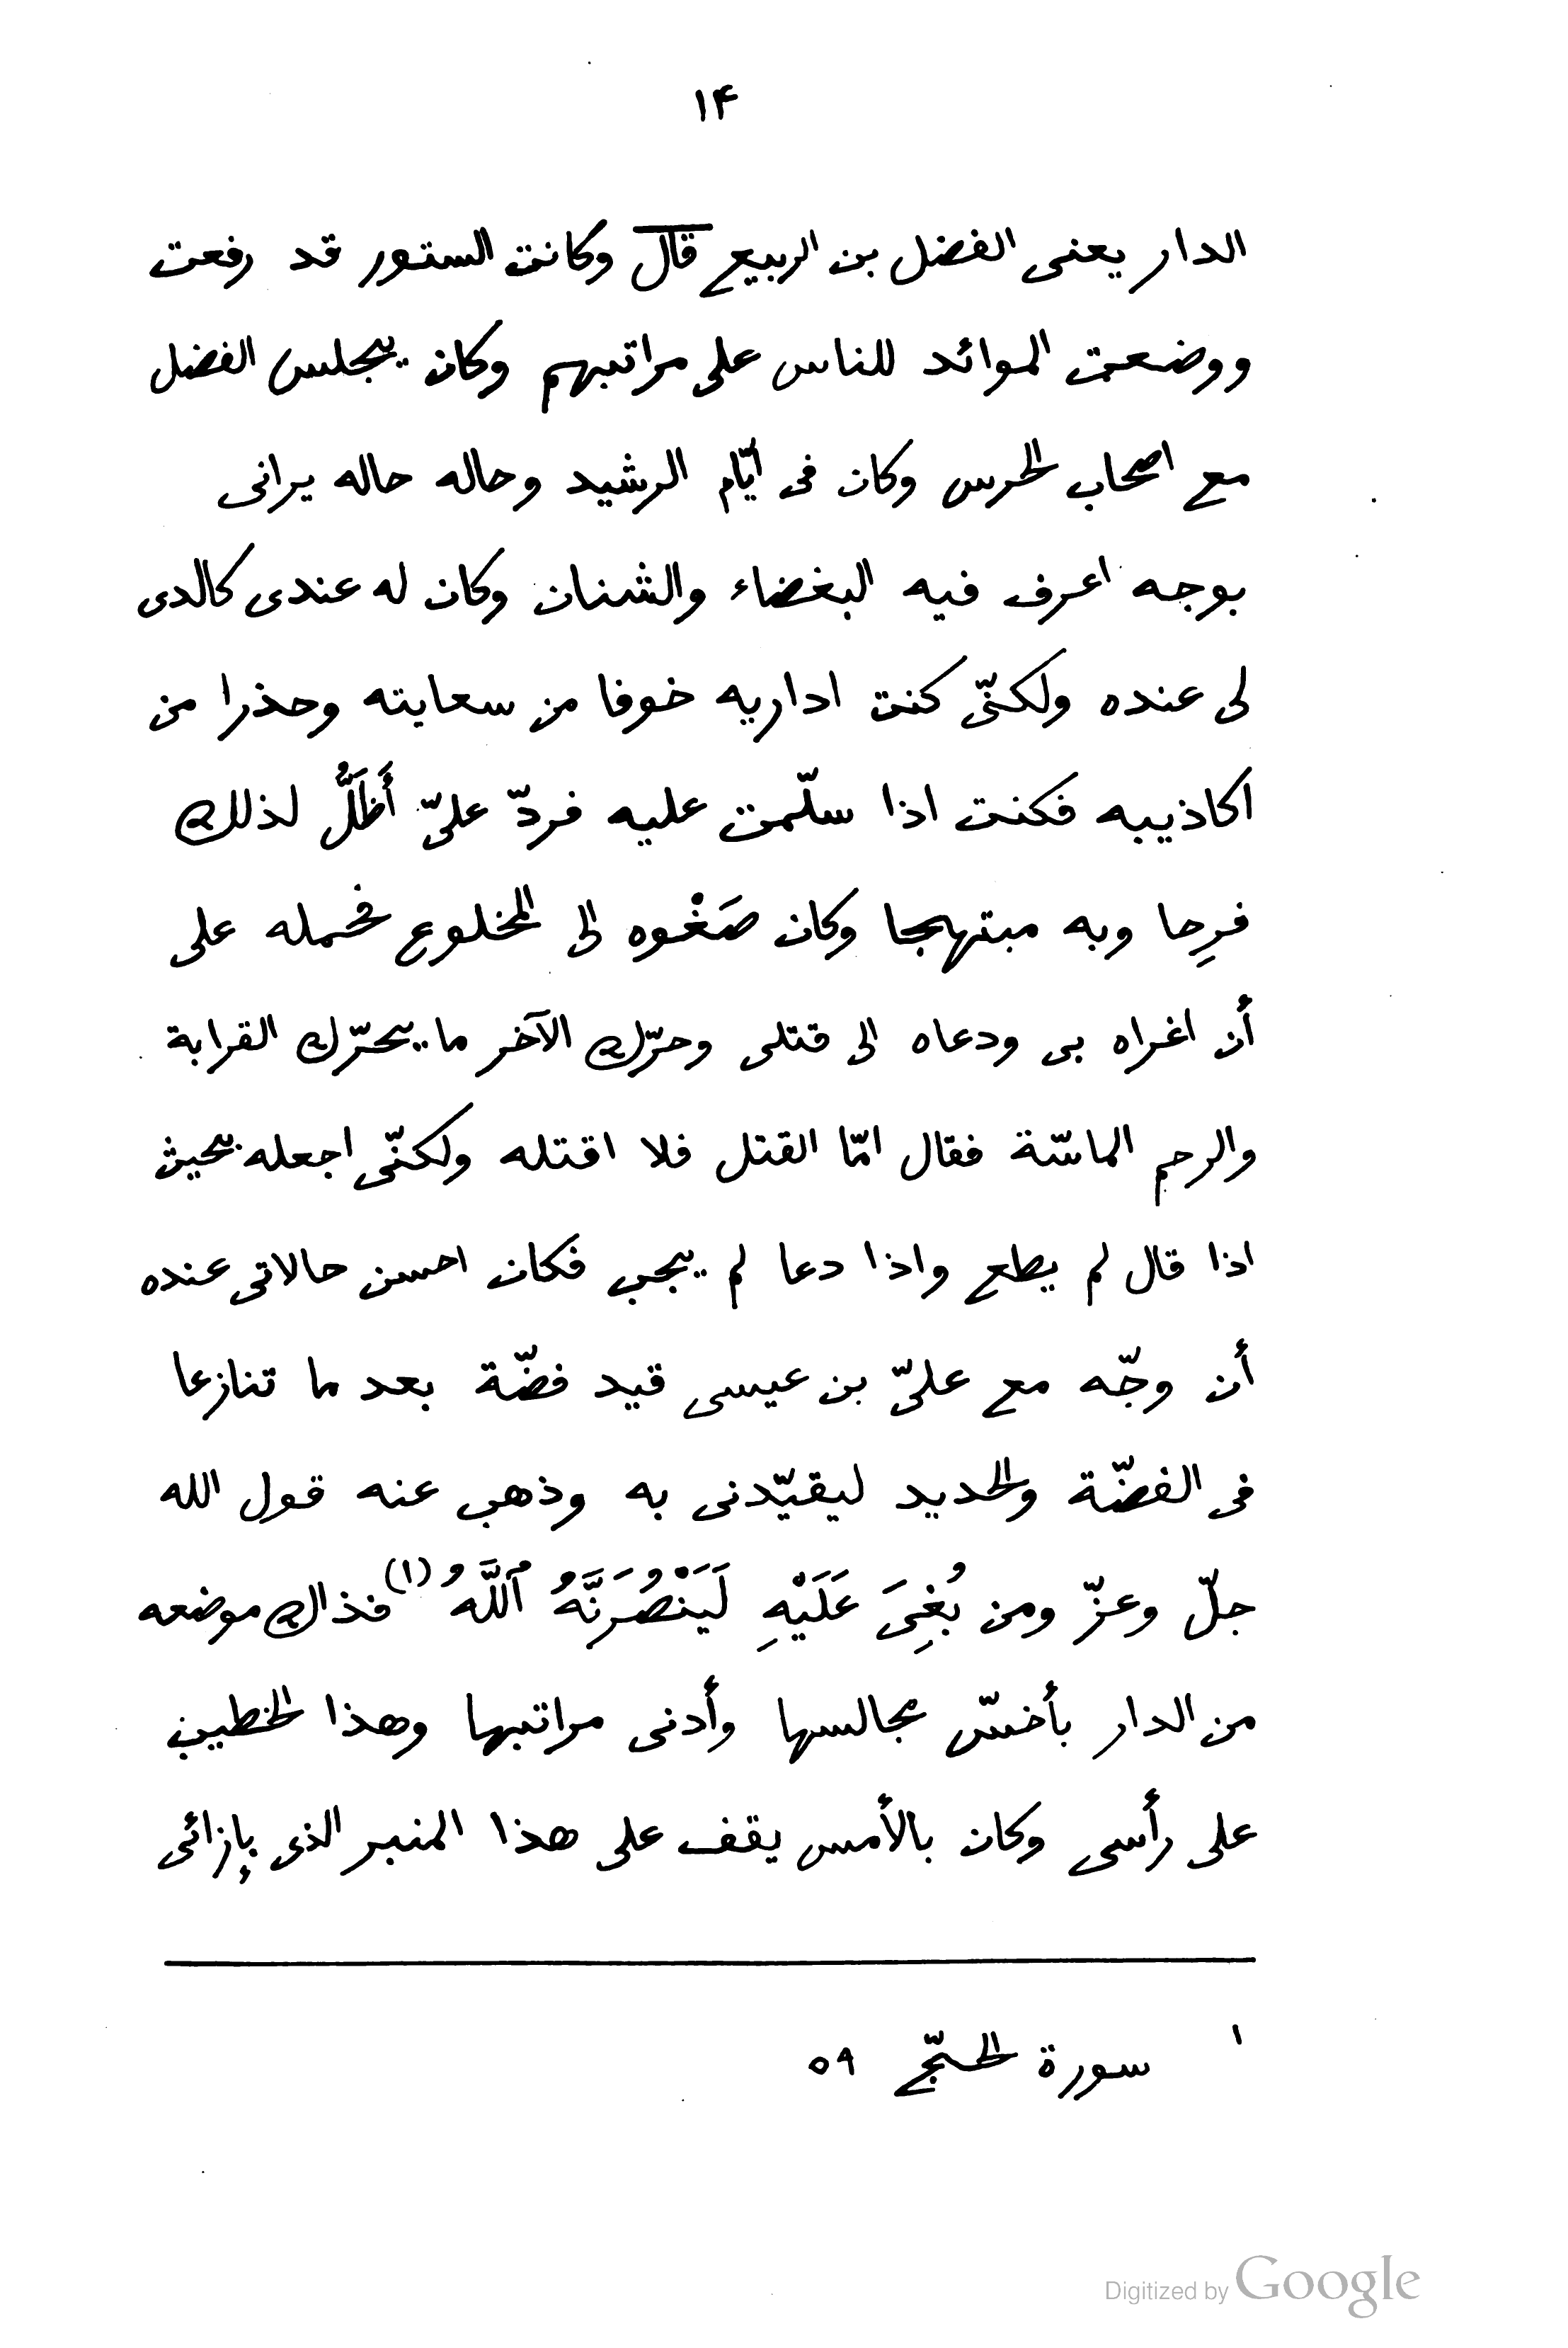 ۱۴
الدار يعنى الفضل بن الربيع قال وكانت الستور قد رفعت
ووضعت الموائد للناس على مراتبهم وكان يجلس الفضل
مع اصحاب الحرس وكان فى ايّام الرشيد وحاله حاله يرانى
بوجه اعرف فيه البغضاء والشنان وكان له عندى كالدى
لى عنده ولكنّى كنت اداريه خوفا من سعايته وحذرا من
اكاذيبه فكنت اذا سلّمت عليه فردّ علىّ أَظَلُّ لذلك
فرِحا وبه مبتهجا وكان صَغْوه الى المخلوع فحمله على
أن اغراه بى ودعاه الى قتلى وحرّك الآخر ما يحرّك القرابة
والرحم الماسّة فقال امّا القتل فلا اقتله ولكنّى اجعله بحيث
اذا قال لم يطع واذا دعا لم يجب فكان احسن حالاتى عنده
أن وجّه مع علىّ بن عيسى قيد فضّة بعد ما تنازعا
فى الفضّة والحديد ليقيّدنى به وذهب عنه قول الله
جلّ وعزّ ومن بُغِىَ عَلَيْهِ لَيَنْصُرَنَّهُ ٱللَّهُ (۱) فذاك موضعه
من الدار بأخسّ مجالسها وأدنى مراتبها وهذا الخطيب
على رأسى وكان بالأمس يقف على هذا المنبر الذى بإزائى
۱ سورة الحجّ ٥٩
Digitized by Google